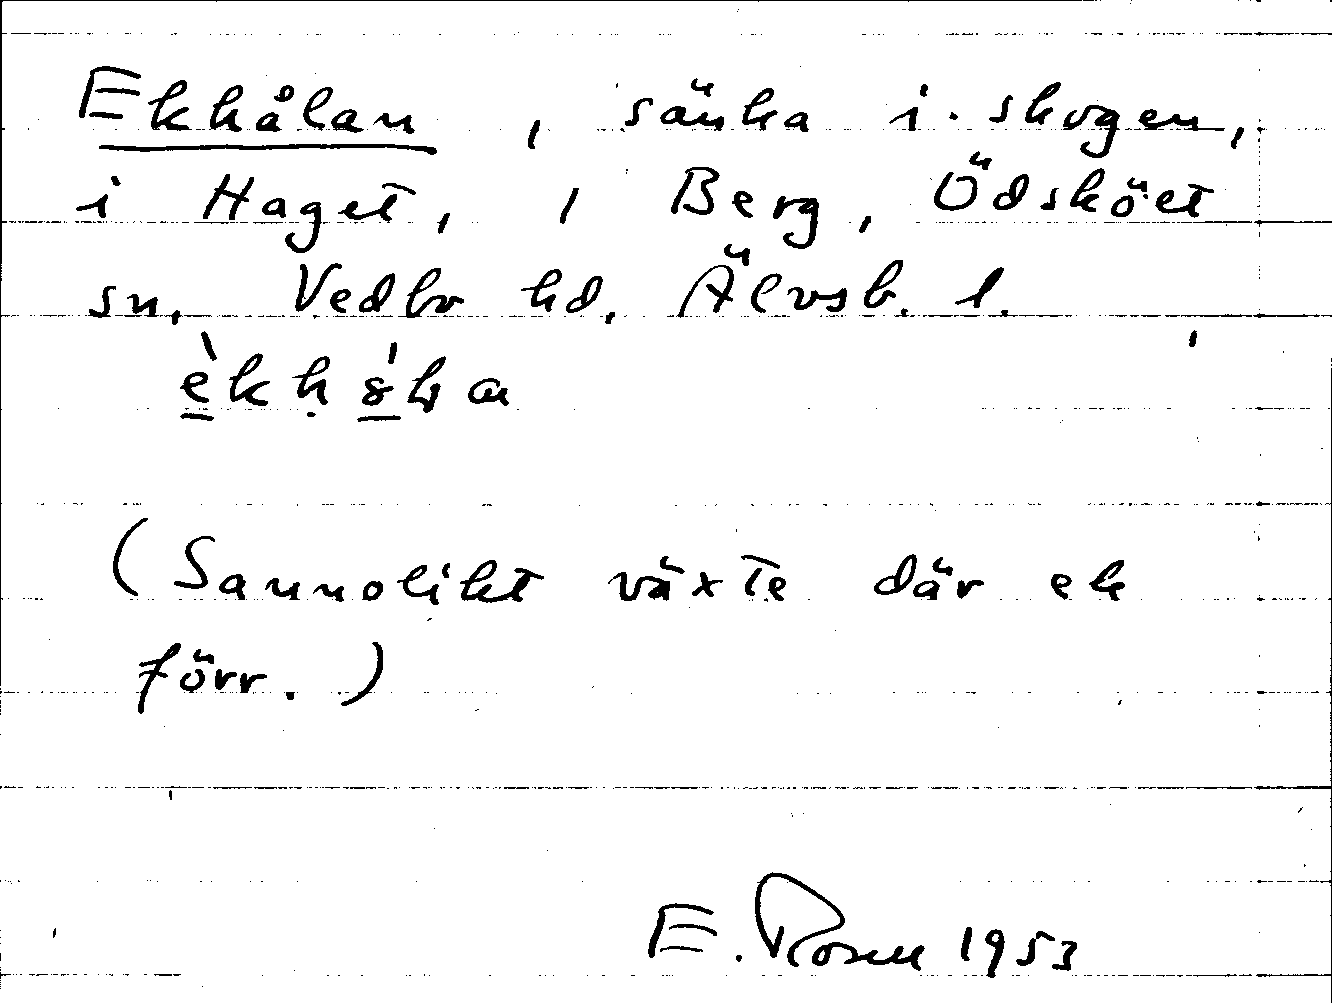 Ekhålan, sänka i skogen,
i Haget, i Berg, Ödsköet
sn, Vedbo hd, Älvsb. l.
(Sannolikt växte där ek
förr.)
E. Rosell 1953